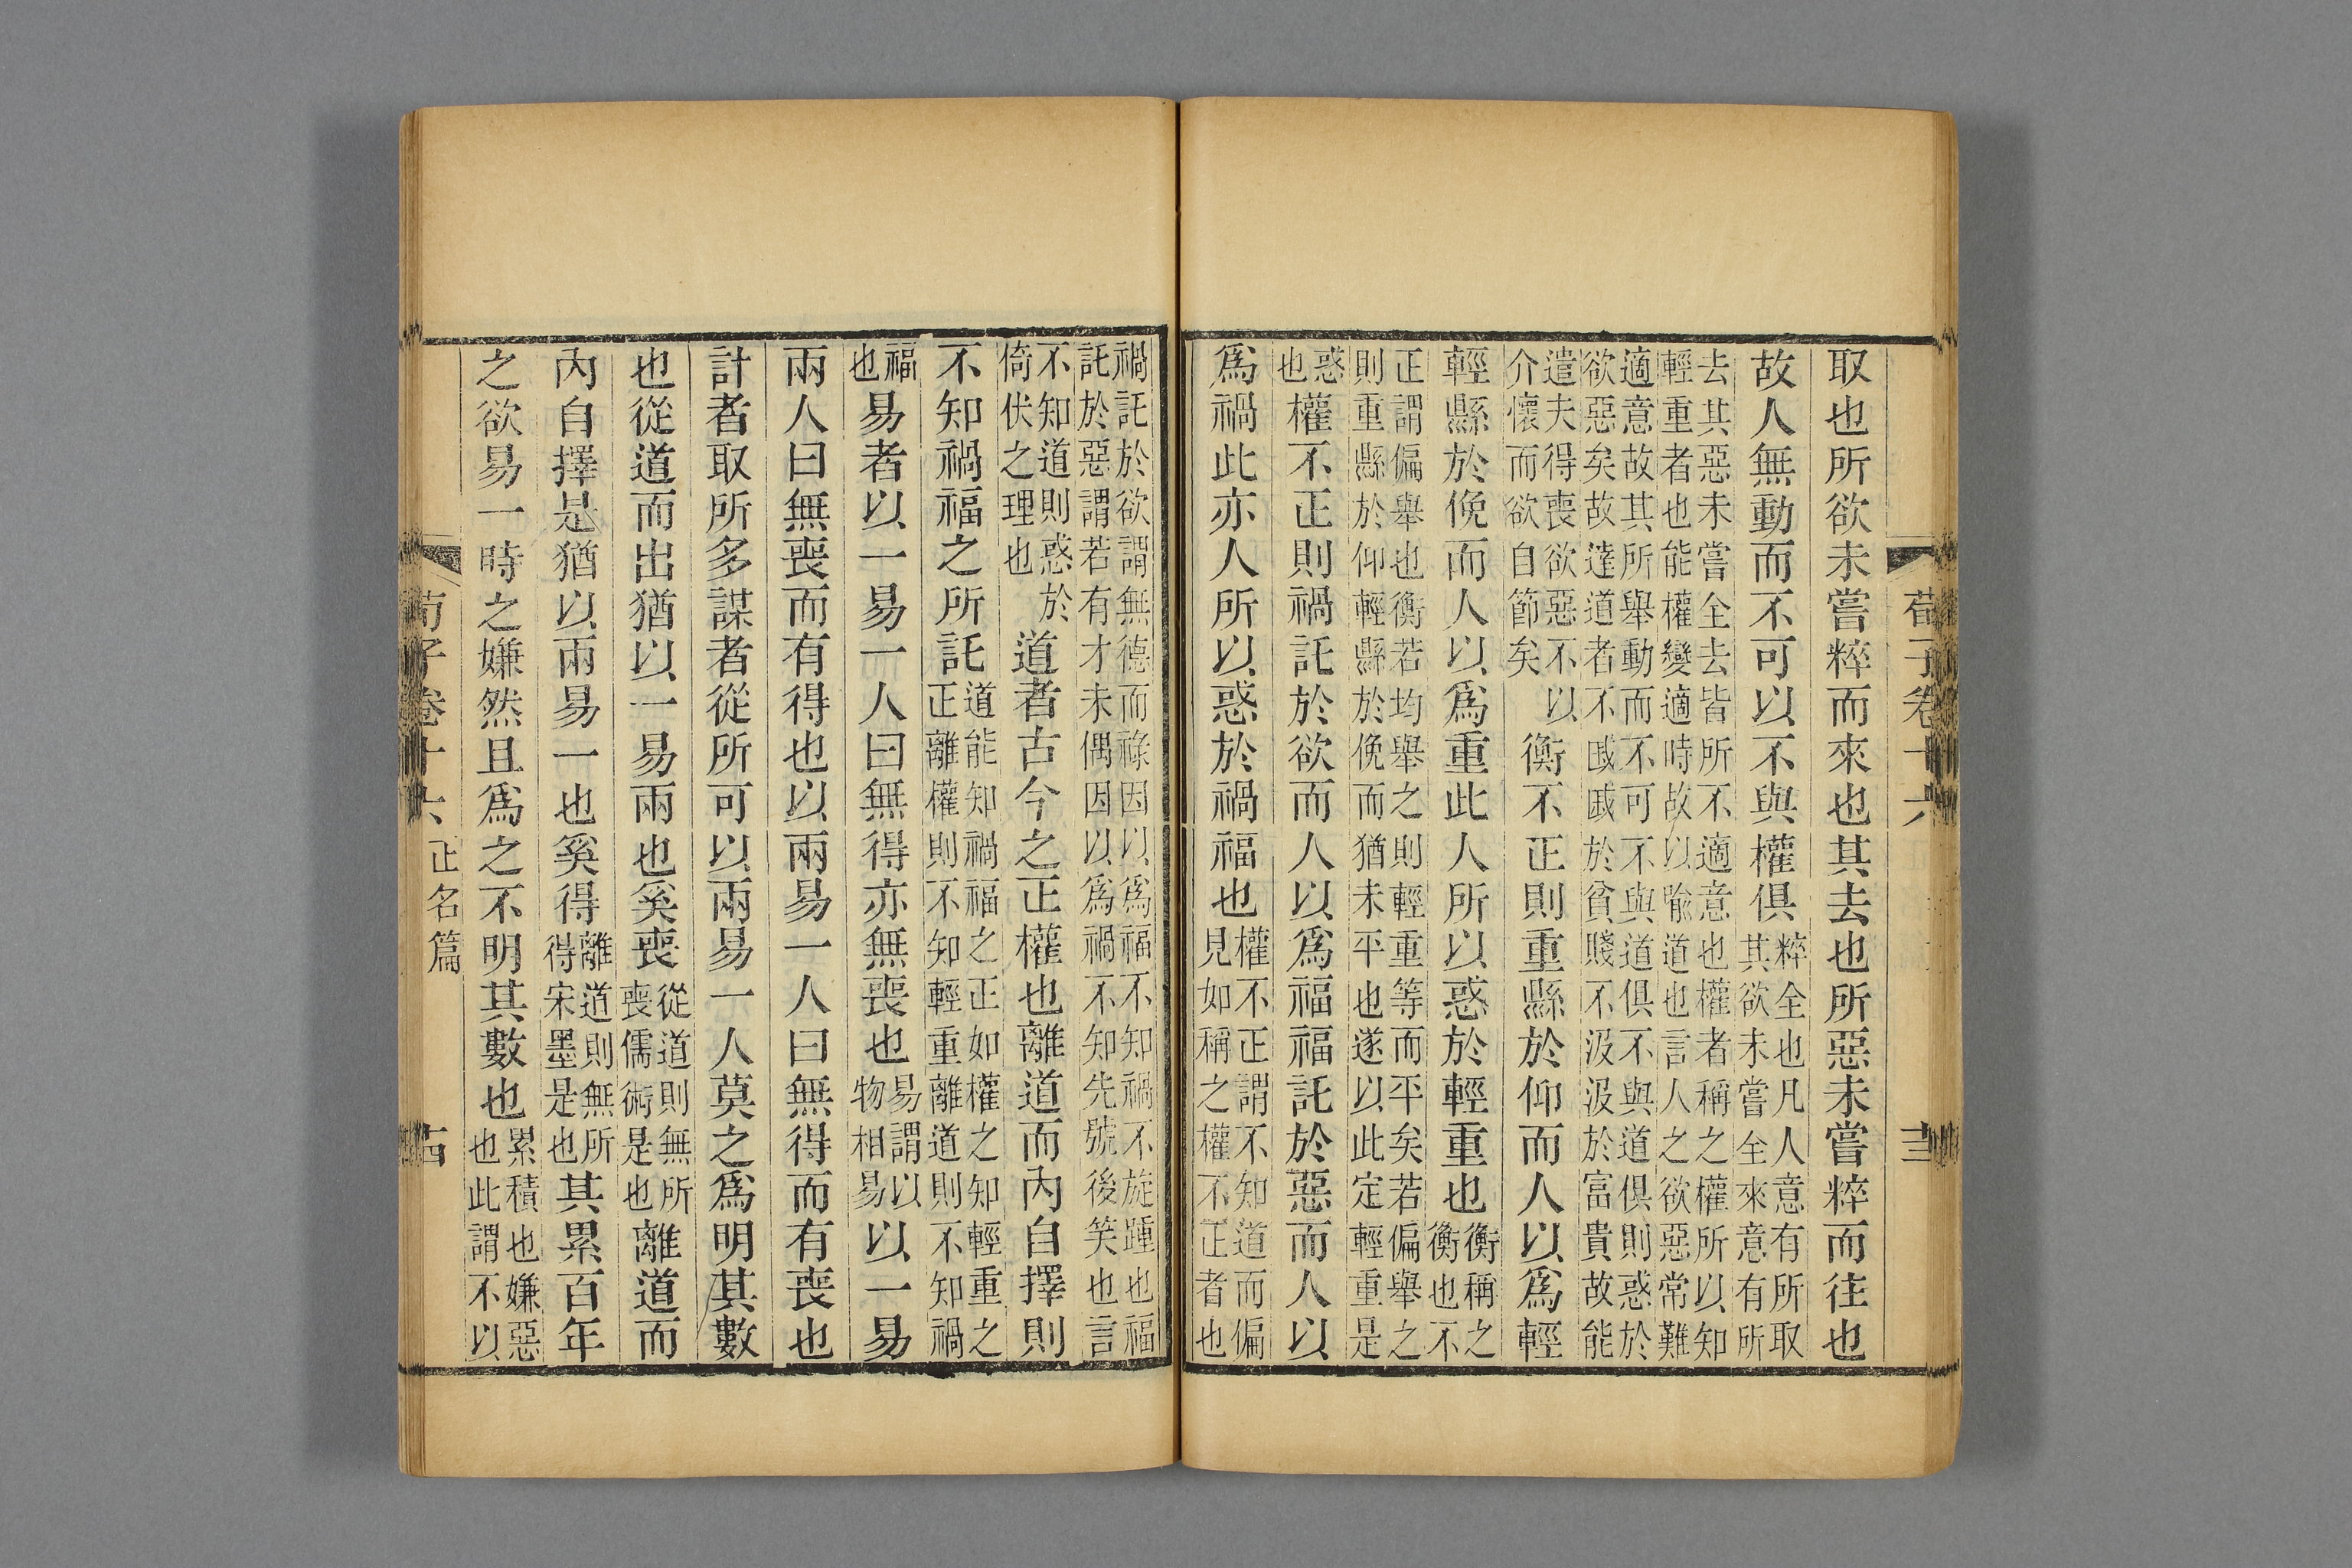 荀子卷十六　十三
取也所欲未嘗粹而來也其去也所惡未嘗粹而往也
故人無動而不可以不與權俱
粹全也凡人意有所取
其欲未嘗全來意有所
去其惡未嘗全去皆所不適意也權者稱之權所以知
輕重者也能權變適時故以喻道也言人之欲惡常難
適意故其所舉動而不可不與道俱不與道俱則惑於
欲惡矣故達道者不戚戚於貧賤不汲汲於富貴故能
遣夫得喪欲惡不以
介懷而欲自節矣
衡不正則重縣於仰而人以爲輕
輕縣於俛而人以爲重此人所以惑於輕重也
衡稱之
衡也不
正謂偏舉也衡若均舉之則輕重等而平矣若偏舉之
則重縣於仰輕縣於俛而猶未平也遂以此定輕重是
惑也
權不正則禍託於欲而人以爲福福託於惡而人以
爲禍此亦人所以惑於禍福也
權不正謂不知道而偏
見如稱之權不正者也
禍託於欲謂無德而祿因以爲福不知禍不旋踵也福
託於惡謂若有才未偶因以爲禍不知先號後笑也言
不知道則惑於
倚伏之理也
道者古今之正權也離道而內自擇則
不知禍福之所託
道能知禍福之正如權之知輕重之
正離權則不知輕重離道則不知禍
福
也
易者以一易一人曰無得亦無喪也
易謂以
物相易
以一易
兩人曰無喪而有得也以兩易一人曰無得而有喪也
計者取所多謀者從所可以兩易一人莫之爲明其數
也從道而出猶以一易兩也奚喪
從道則無所
喪儒術是也
離道而
內自擇是猶以兩易一也奚得
離道則無所
得宋墨是也
其累百年
之欲易一時之嫌然且爲之不明其數也
累積也嫌惡
也此謂不以
荀子卷十六　正名篇　十四